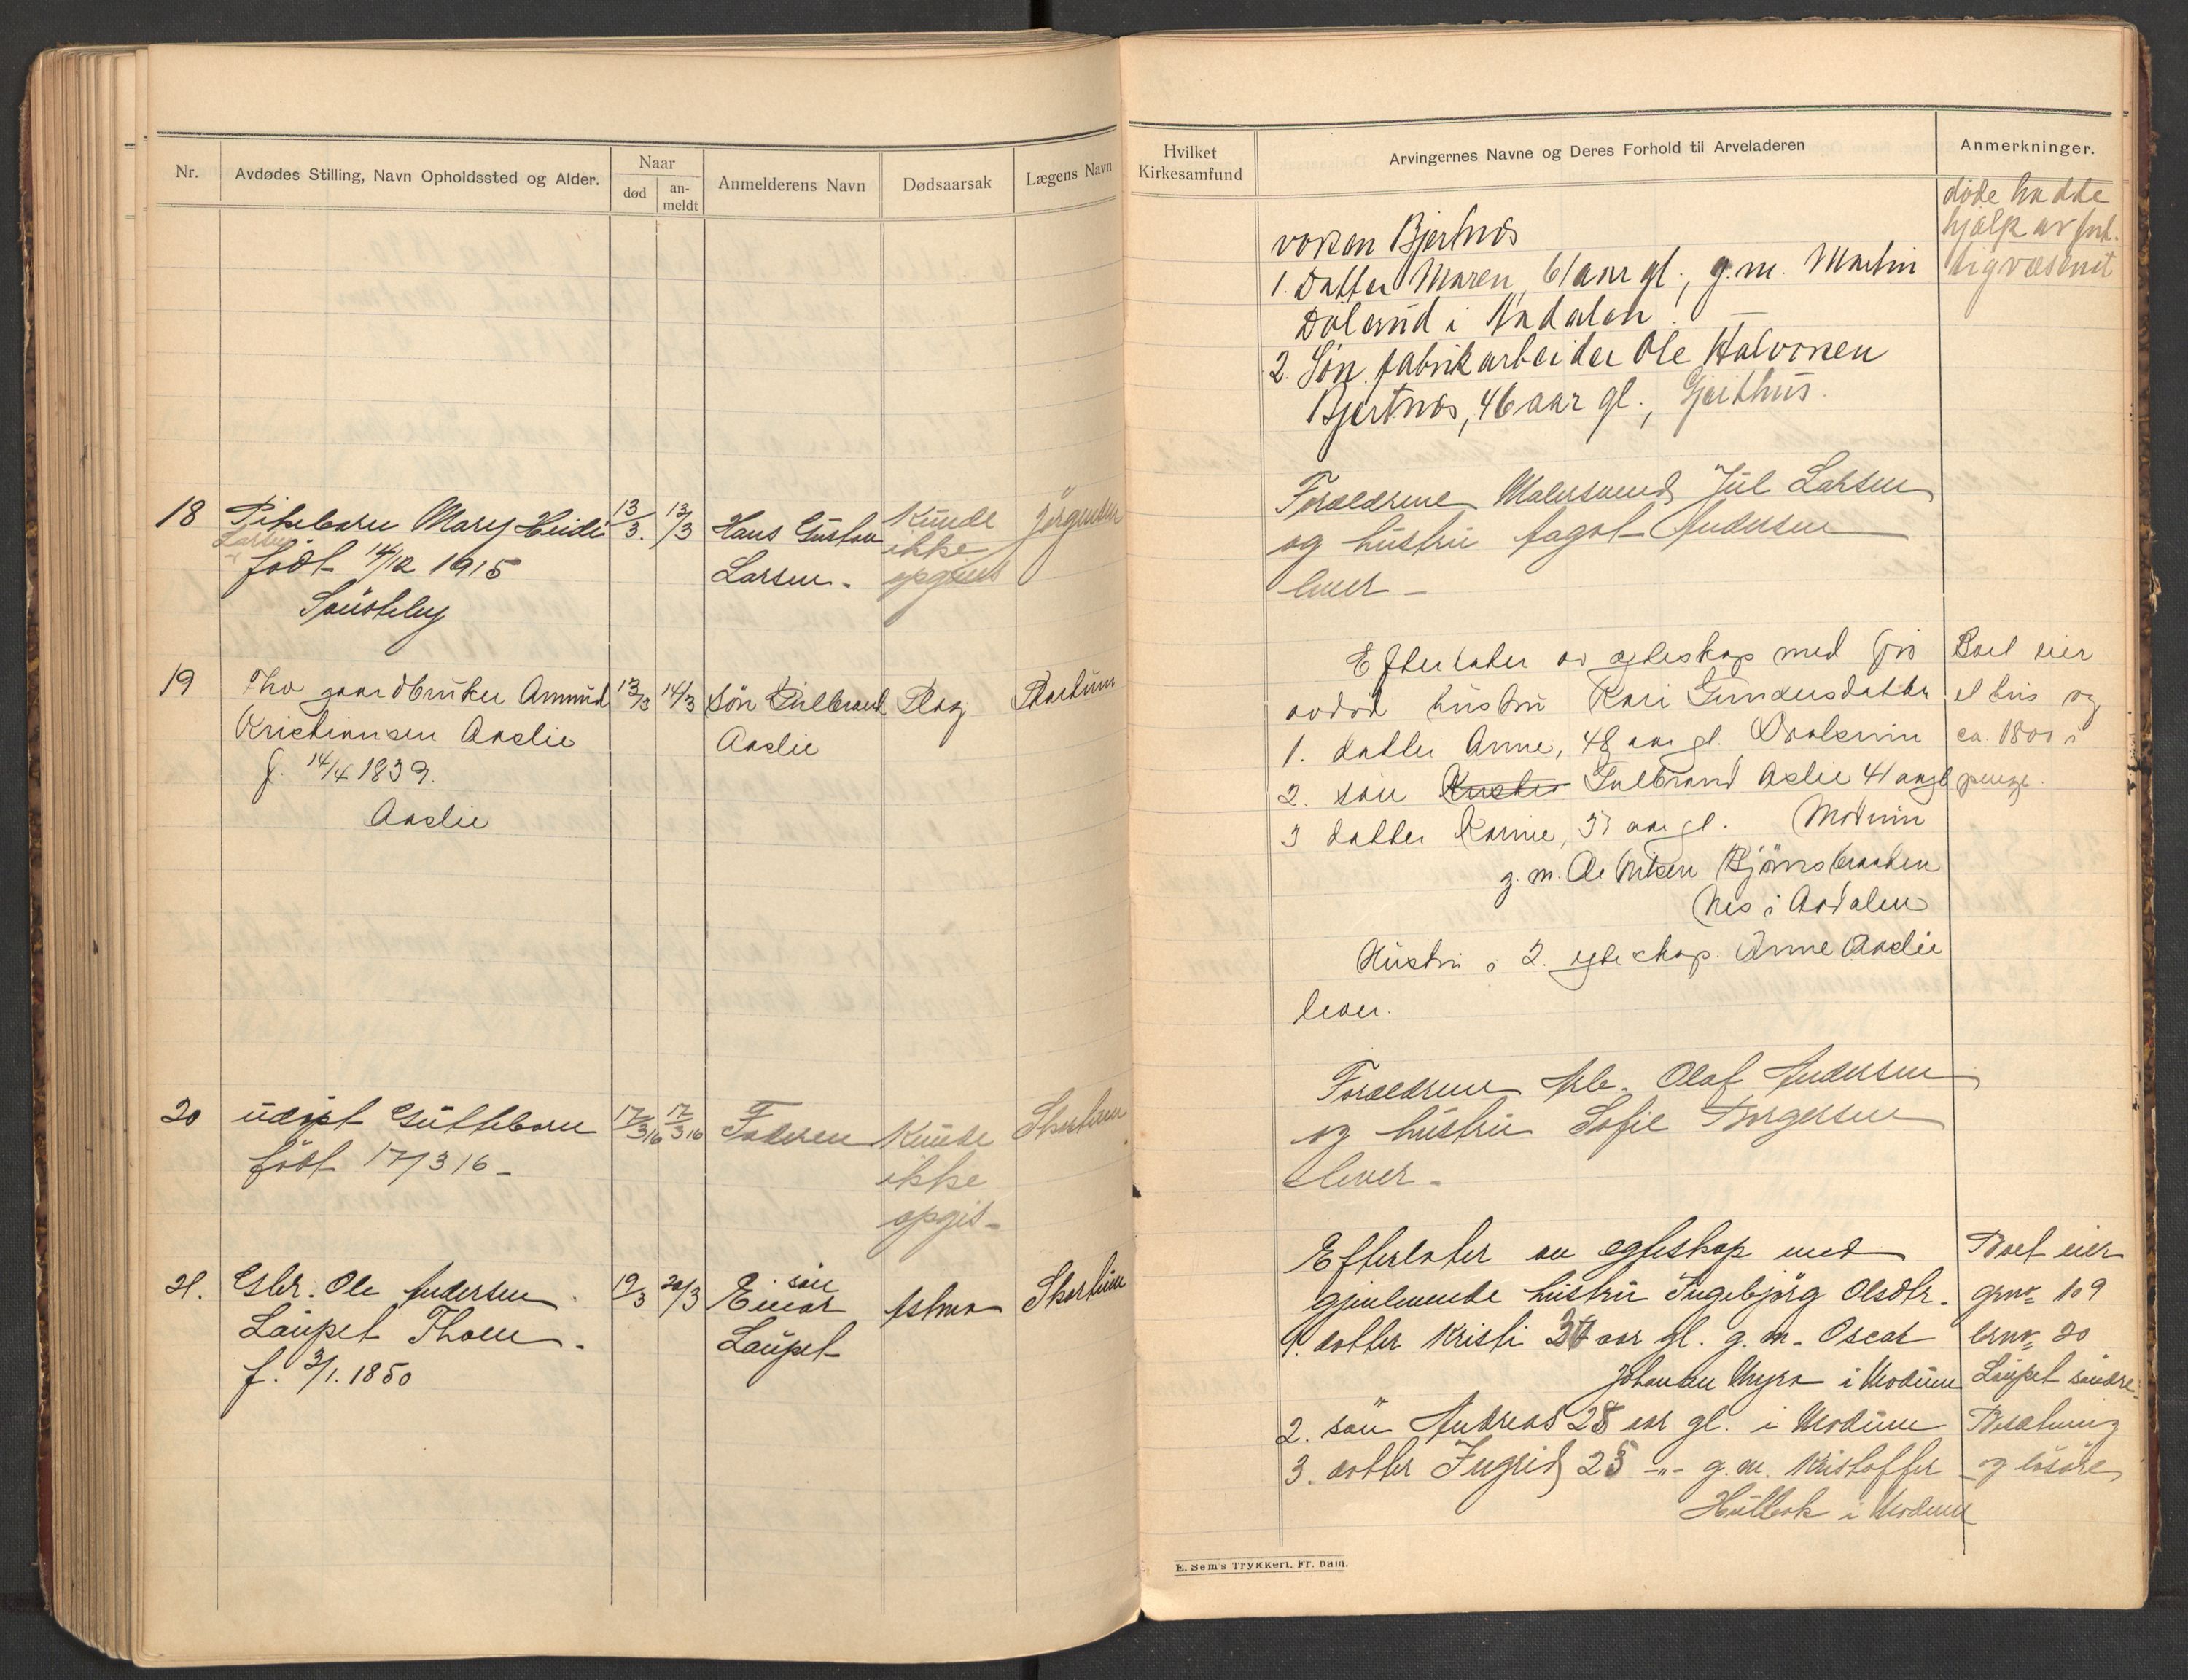 Nr.
Avdødes Stilling, Navn Opholdssted og Alder.
Naar
død
an-
meldt
Anmelderens Navn
Dødsaarsak
Lægens Navn
18 Pikebarn Mary Heidi 13/3. 13/3 Hans Gustav Kunde Jørgensen
Larsen ikke
født 14/12 1915 Larsen - opgives
19 Fhv gaardbruker Amund 13/3 14/3 Søn Gulbrand Slag Skartum
Kristiansen Aaslie Aaslie
f. 14/4 1839.
Aaslie
20 udøpt Guttebarn 17/3 16 17/3 16 Faderen Kunde Skartum
født 17/3 16 - ikke
opgis -
21. Gbr. Ole Andersen 19/3 20/3 søn
Einar Astma Skartum
Laupet Thoen. Laupet
f. 3/1. 1850
Hvilket
Kirkesamfund
Arvingernes Navne og Deres Forhold til Arveladeren
Anmerkninger.
døde hadde
hjælp av fat-
tigvæsenet
Bjertnæs
1. Datter Maren, 61 aar gl., g.m. Martin
Døland i Aadalen.
2. Søn. fabrikarbeider Ole Halvorsen
Bjertnæs, 46 aar gl., Geithus.
Forældrene Malersvend Jul Larsen
og hustru Aagot Andersen
lever -
Efterlater av egteskap med før Boet eier
avdød hustru Kari Gundersdatter et hus og
1. datter Anne, 48 aar gl. ca. 1800 i
2. søn Gulbrand Aslie 41 aar gl penge.
3 datter Karine, 37 aar gl. Modum
g. m. Ole Bjørnsbraaten
Nes i Aadalen
Hustru i 2. egteskap. Anne Aaslie
lever.
Forældrene Arb. Olaf Andersen
og hustru Sofie Borgersen
lever -
Efterlater av egteskap med Boet eier
gjenlevende hustru Ingebjørg Olsdtr. gnr 109
1. datter Kristi aar gl. g. m. Oscar brnr 20
Johansen Myra i Modum Laupet søndre.
2. søn Andreas 28 aar gl. i Modum Besætning
3. datter Ingrid 25 -"- g. m. Kristoffer og løsøre
Hulbak i Modum
E. Sem's Trykkeri, Fr. hald.